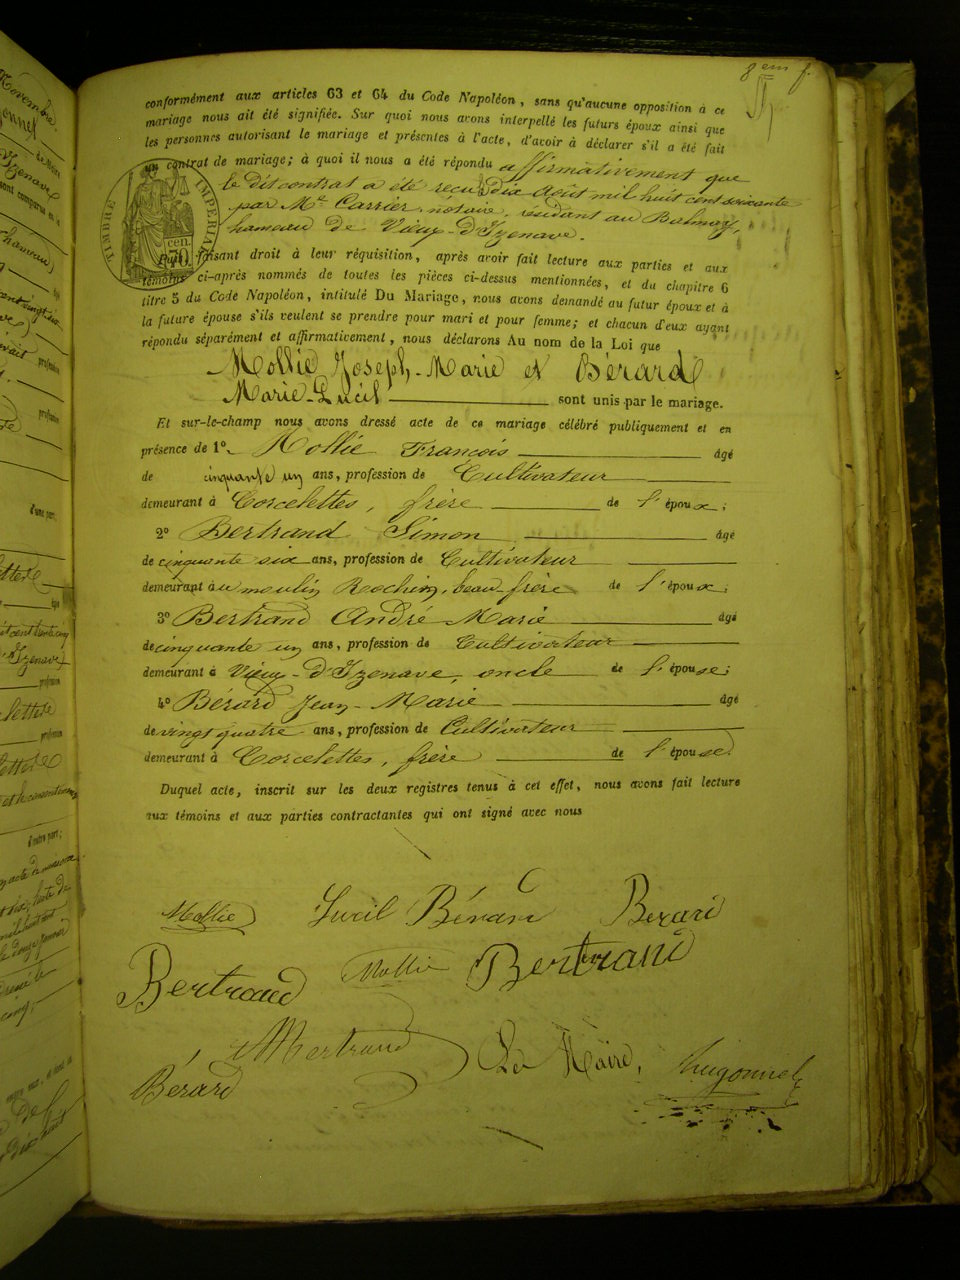 8em f.
conformément aux articles 63 et 64 du Code Napoléon, sans qu'aucune opposition à ce
mariage nous ait été signifiée. Sur quoi nous avons interpellé les futurs époux ainsi que
les personnes autorisant le mariage et présentes à l'acte, d'avoir à déclarer s'il a été fait
un contrat de mariage; à quoi il nous a été répondu affirmativement que
le dit contrat a été recu dix août mil huit cent soixante
par Me Carrier, notaire, résidant au Balmay,
hameau de Vieux-d'Izenave.
TIMBRE IMPÉRIAL
cen. 70
faisant droit à leur réquisition, après avoir fait lecture aux parties et aux
témoins ci-après nommés de toutes les pièces ci-dessus mentionnées, et du chapitre 6
titre 5 du Code Napoléon, intitulé Du Mariage, nous avons demandé au futur époux et à
la future épouse s'ils veulent se prendre pour mari et pour femme; et chacun d'eux ayant
répondu séparément et affirmativement, nous déclarons Au nom de la Loi que
Mollie Joseph-Marie et Bérard
Marie-Lucil sont unis par le mariage.
Et sur-le-champ nous avons dressé acte de ce mariage célébré publiquement et en
présence de 1o Mollie François âgé
de cinquante un ans, profession de Cultivateur
demeurant à Corcelettes, frère de l'époux;
2o Bertrand Simon âgé
de cinquante six ans, profession de Cultivateur
demeurant au moulin Rochin, beau-frère de l'époux;
3o Bertrand André Marie âgé
de cinquante un ans, profession de Cultivateur
demeurant à Vieux-d'Izenave, oncle de l'épouse;
4o Bérard Jean-Marie âgé
de vingt quatre ans, profession de Cultivateur
demeurant à Corcelettes, frère de l'épouse
Duquel acte, inscrit sur les deux registres tenus à cet effet, nous avons fait lecture
aux témoins et aux parties contractantes qui ont signé avec nous
Mollie Lucil Bérard Berard
Bertrand Mollie Bertrand
Bertrand Le Maire, hugonnet
Bérard